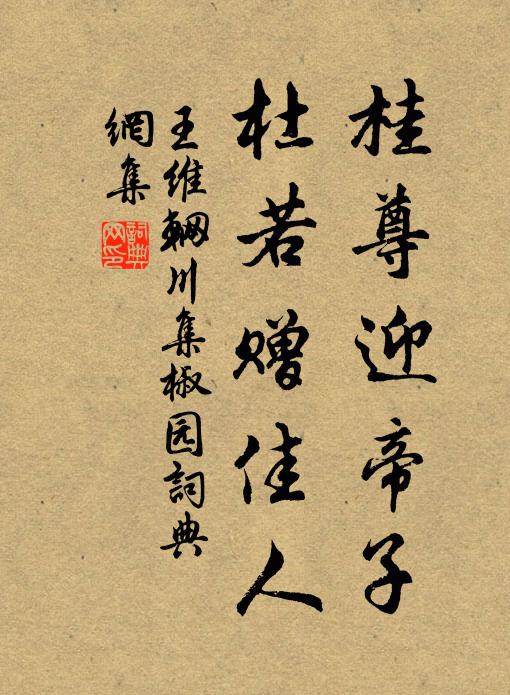 桂尊迎帝子
杜若赠佳人
王維輞川集椒园詞典
網集
詞典
网印